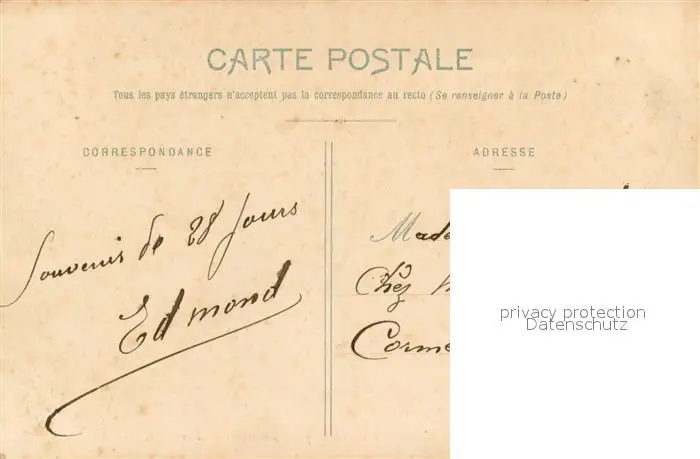 CARTE POSTALE
Tous les pays étrangers n'acceptent pas la correspondance au recto (Se renseigner à la Poste)
CORRESPONDANCE
ADRESSE
Souvenir de 28 jours
Edmond
Made
Chez
Corme
privacy protection
Datenschutz